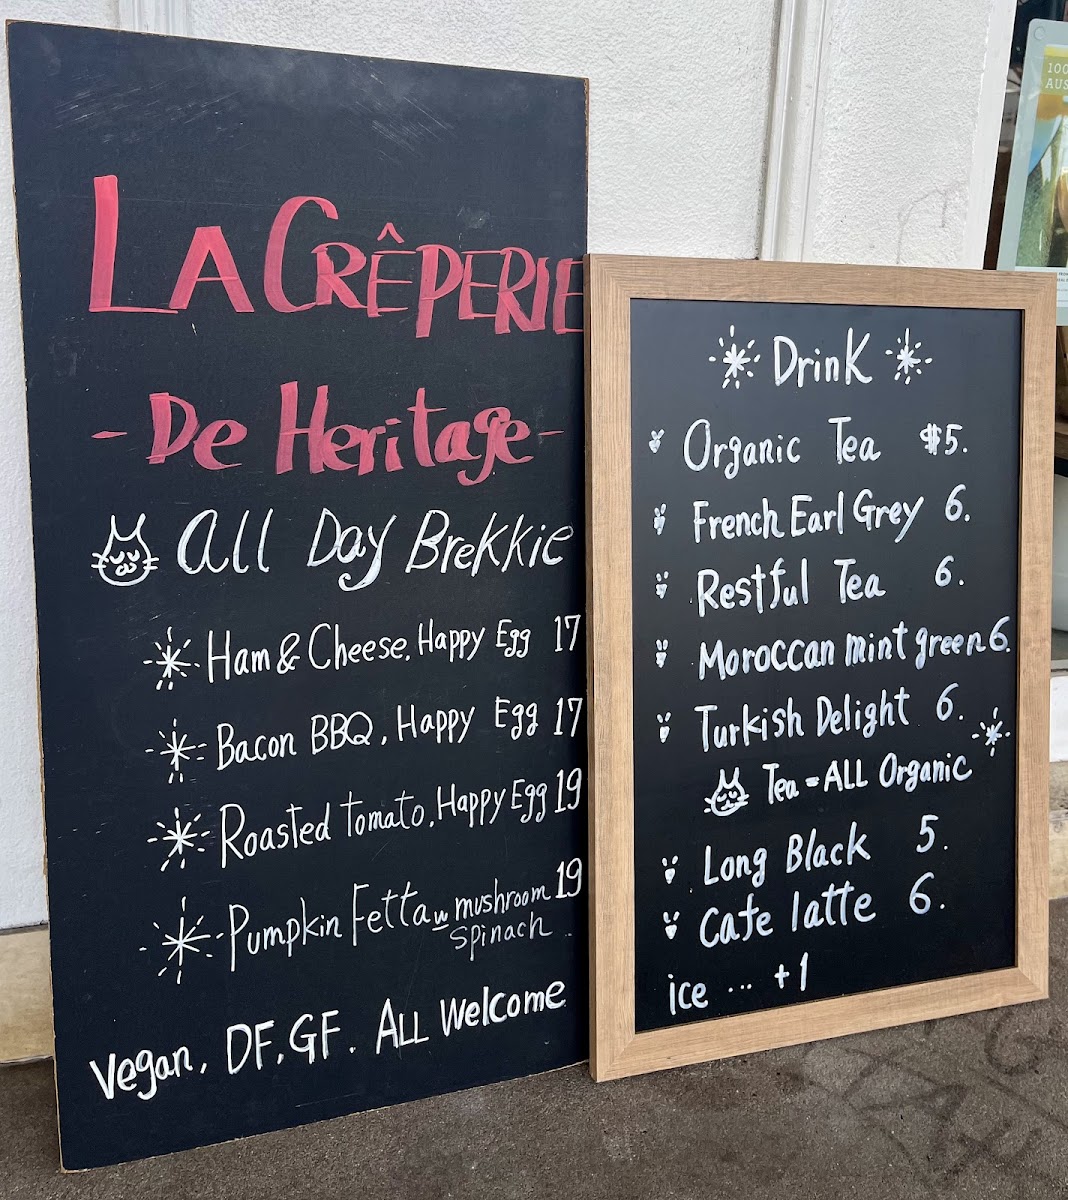 LA CRÊPERIE
- De Heritage -
All Day Brekkie
Ham & Cheese, Happy Egg 17
Bacon BBQ, Happy Egg 17
Roasted Tomato, Happy Egg 19
Pumpkin Fetta w mushroom 19
spinach
Vegan, DF, GF. ALL Welcome
Drink
Organic Tea $5.
French Earl Grey 6.
Restful Tea 6.
Moroccan mint green 6.
Turkish Delight 6.
Tea = ALL Organic
Long Black 5.
Cafe latte 6.
ice ... +1
100
AUS